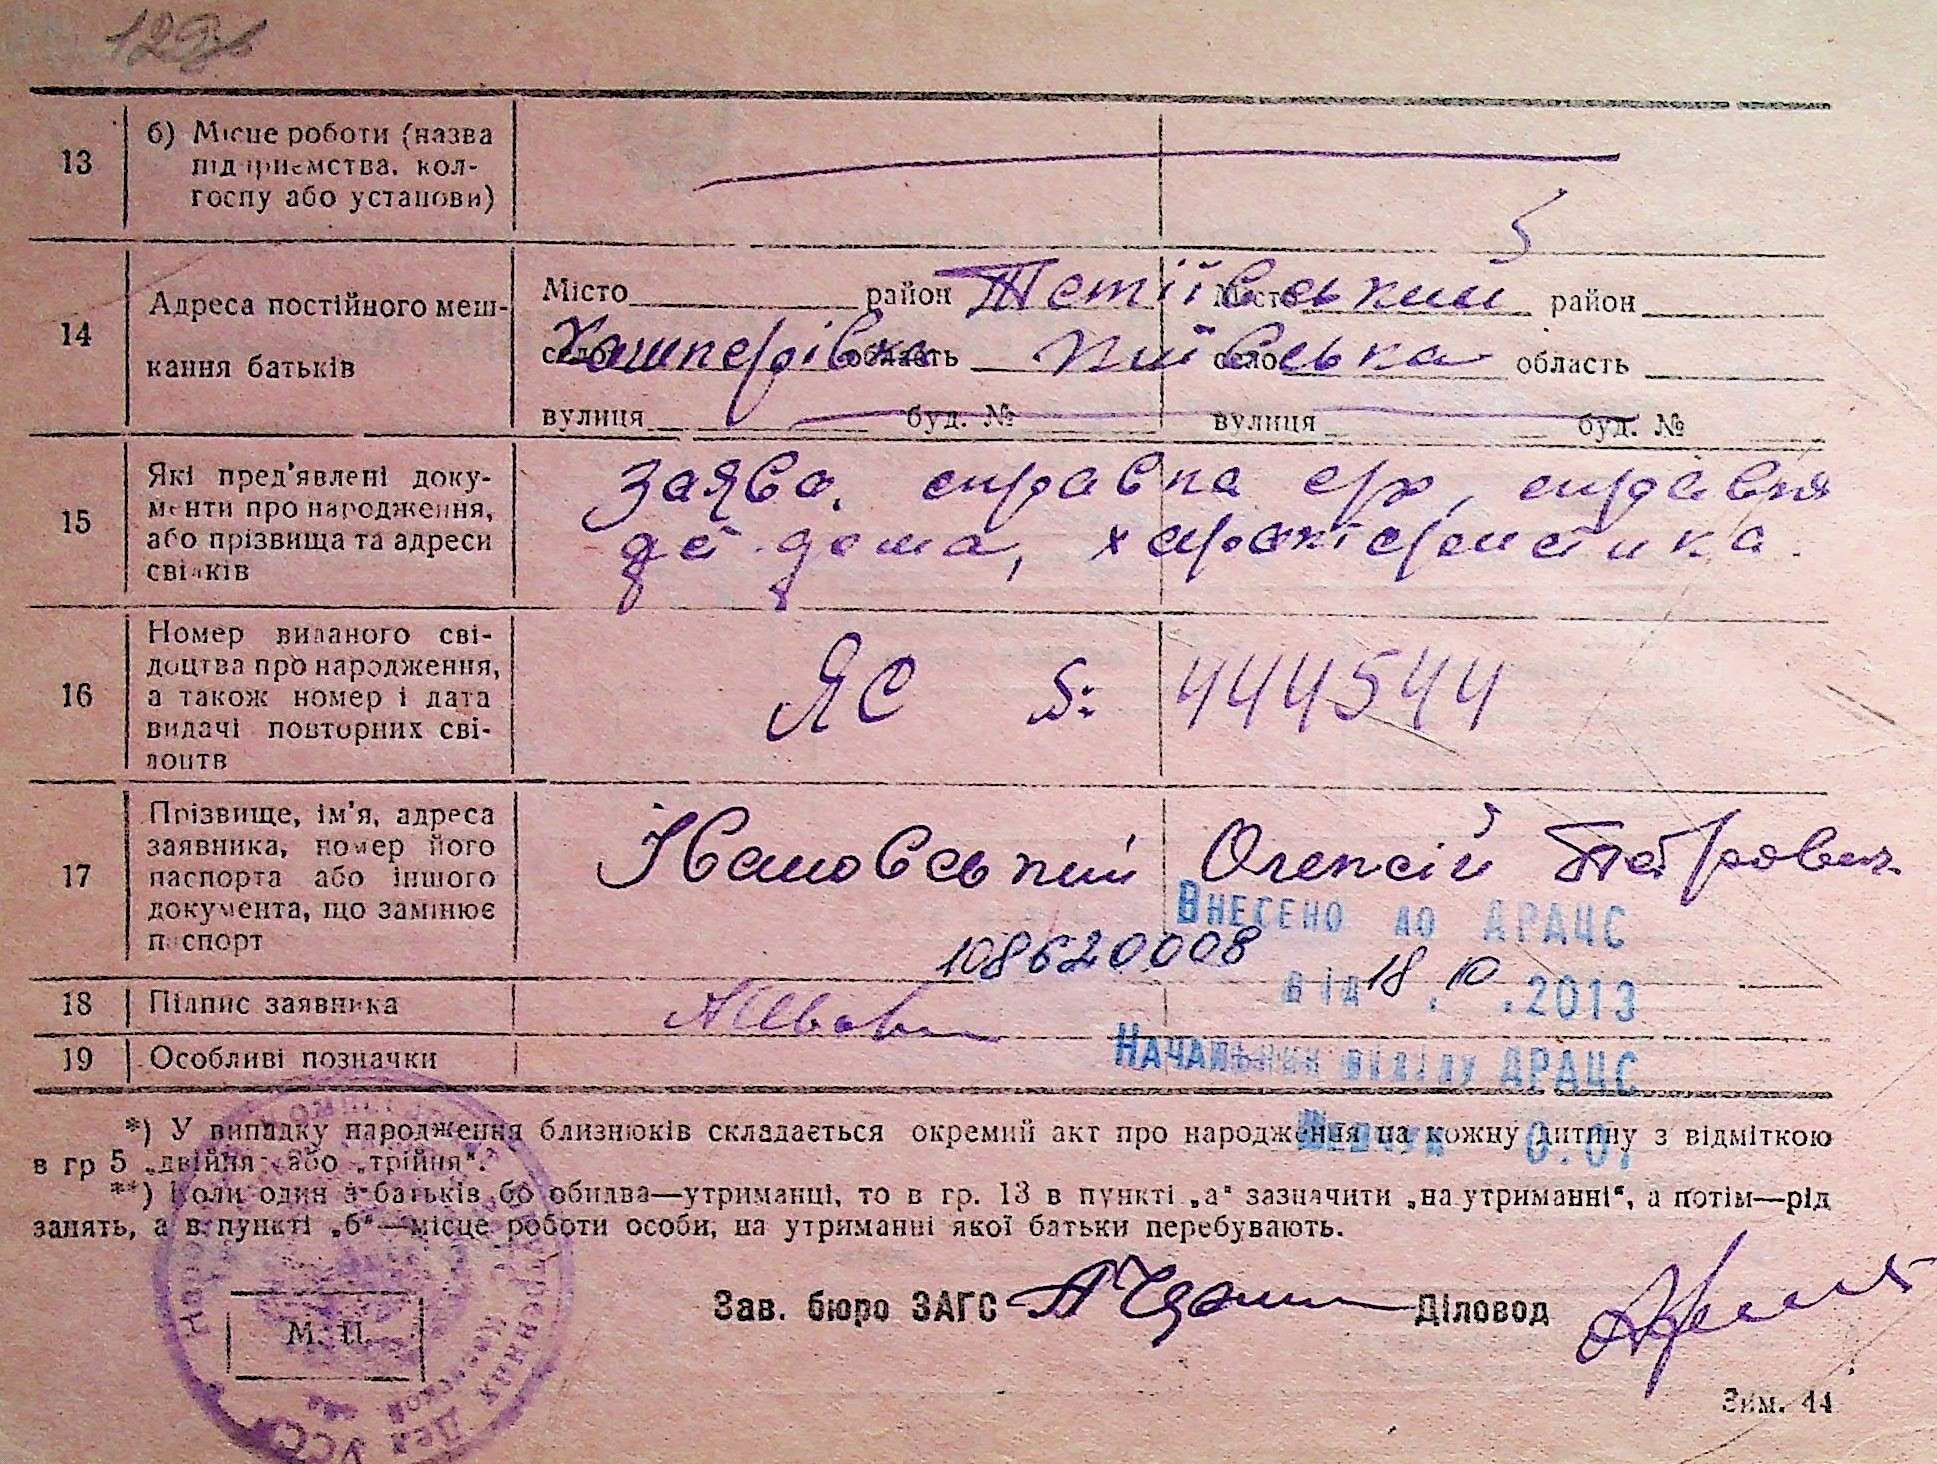 13 б) Місце роботи (назва
підприємства, кол-
госпу або установи)
14 Адреса постійного меш-
кання батьків
Місто район Тетіївський Місто район
село Кашперівка область Київська село область
вулиця буд. № вулиця буд. №
15 Які пред'явлені доку-
менти про народження,
або прізвища та адреси
свідків
Заява, справка
дома, характеристика.
16 Номер виданого сві-
доцтва про народження,
а також номер і дата
видачі повторних сві-
доцтв
ЯС № 444544
17 Прізвище, ім'я, адреса
заявника, номер його
паспорта або іншого
документа, що замінює
паспорт
Івановський Олексій Петрович
Внесено до АРАЦС
108620008
від 18.10.2013
18 Підпис заявника
19 Особливі позначки
Начальник відділу ДРАЦС
Шевчук О.О.
*) У випадку народження близнюків складається окремий акт про народження на кожну дитину з відміткою
в гр 5 „двійня“ або „трійня“.
**) Коли один з батьків бо обидва—утриманці, то в гр. 13 в пункті „а“ зазначити „на утриманні“, а потім—рід
занять, а в пункті „б“—місце роботи особи, на утриманні якої батьки перебувають.
М. П.
Зав. бюро ЗАГС Діловод
Зим. 44